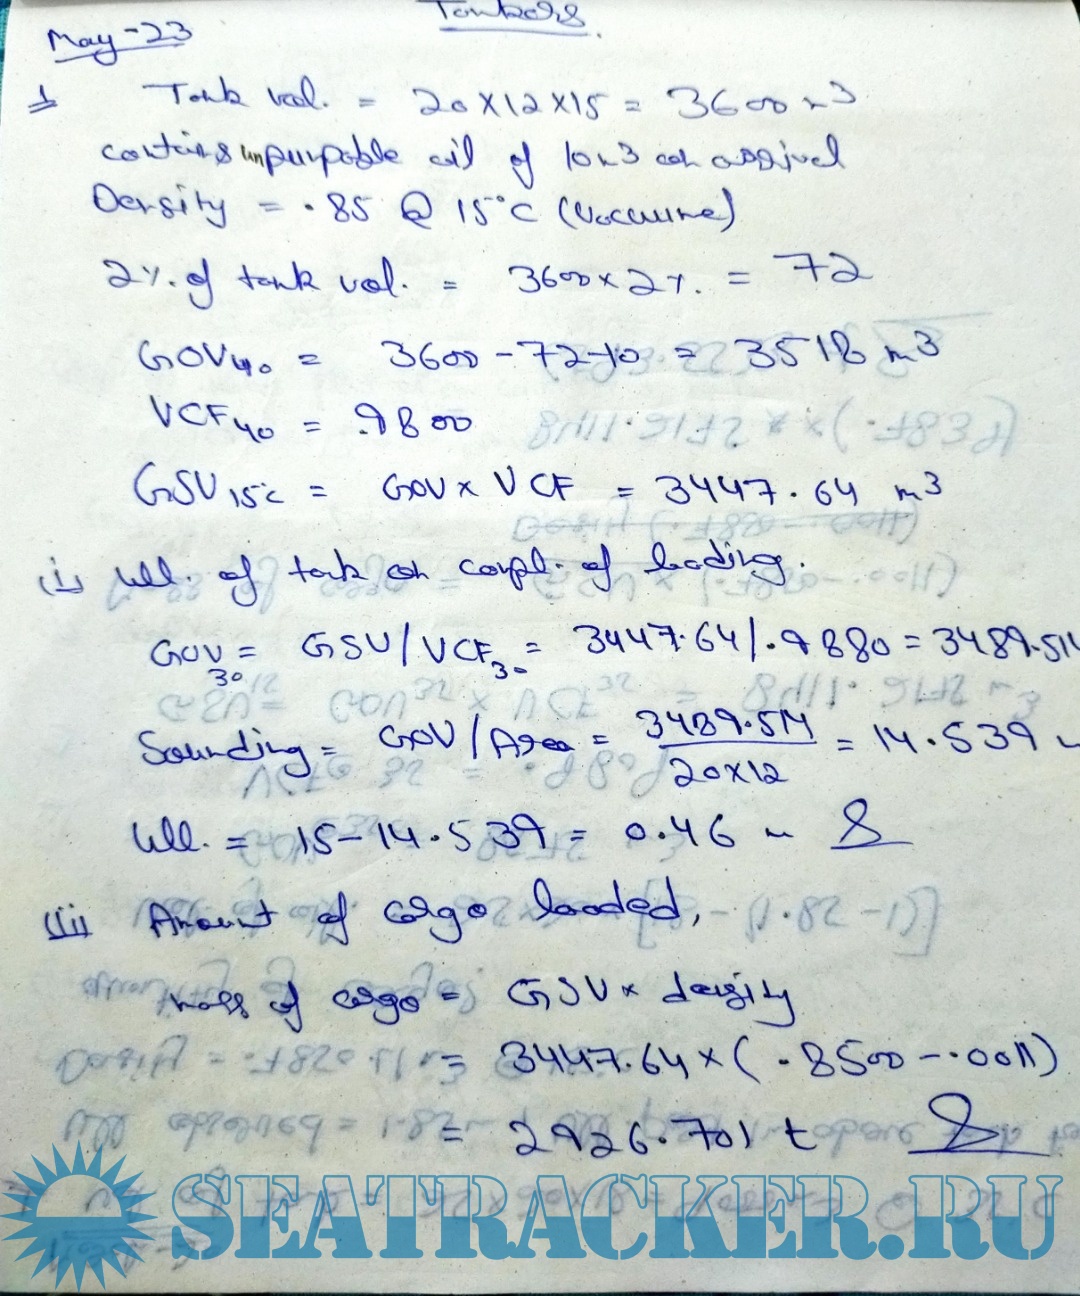 Tankers.
May-23
1 Tank vol. = 20x12x15 = 3600 m3
contains unpumpable oil of 10 m3 on arrival
Density = .85 @ 15°C (Vaccume)
2%. of tank vol. = 3600 x 2%. = 72
GOV40 = 3600-72-10 = 3518 m3
VCF40 = .9800
GSV15°C = GOV x VCF = 3447.64 m3
(i) Ull. of tank on compl. of loading.
GOV30 = GSV/VCF30 = 3447.64/.9880 = 3489.514
Sounding = GOV/Area = 3489.514/20x12 = 14.539 m
Ull. = 15-14.539 = 0.46 m
(ii) Amount of cargo loaded,
mass of cargo = GSV x density
= 3447.64 x (.8500-.0011)
= 2926.701 t
SEATRACKER.RU